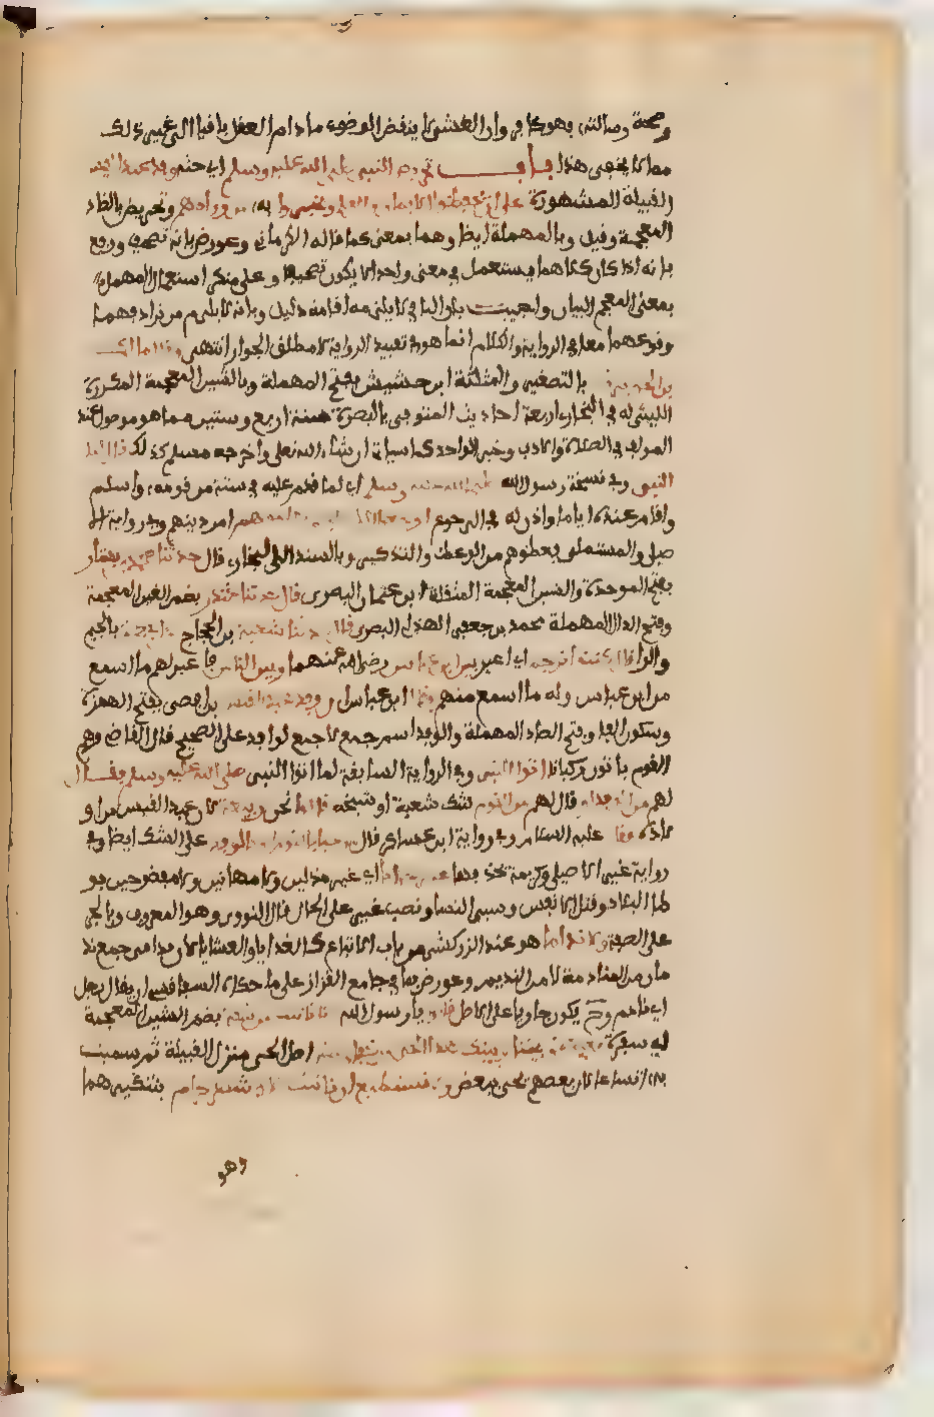 وصحة رسالته فهو كافر وان الغشي لا ينقض الوضوء ما دام العقل باقيا الى غير ذلك
مما لا يخفى هذا باب تحريض النبي صلى الله عليه وسلم اي حثه وفد عبد القيس
القبيلة المشهورة على ان يحفظوا الايمان والعلم ويخبروا به من وراءهم وتحريض بالضاد
المعجمة وقيل وبالمهملة ايضا وهما بمعنى كما قاله الكرماني وعورض بانه تصحيف ودفع
بانه اذا كان كلاهما يستعمل في معنى واحد لا يكون تصحيفا وعلى منكر استعمال المهملة
بمعنى المعجم البيان واجيب بان النافي لا يلزمه اقامة دليل وبانه لا يلزم من ترادفهما
وقوعهما معا في الرواية والكلام انما هو في تقييد الرواية لا مطلق الجواز انتهى وقال مالك
بن الحويرث بالتصغير والمثلثة ابن حشيش بفتح المهملة وبالشين المعجمة المكررة
الليثي له في البخاري اربعة احاديث المتوفى بالبصرة سنة اربع وستين مما هو موصول عند
المولف في الصلاة والادب وخبر الواحد كما سياتي ان شاء الله تعلى واخرجه مسلم كذلك قال لنا
النبي وفي نسخة رسول الله صلى الله عليه وسلم اي لما قدم عليه في ستة من قومه واسلم
واقام عنده اياما واذن له في الرجوع ارجعوا الى اهليكم فعلموهم امر دينهم وفي رواية الا
صيلي والمستملي فعظوهم من الوعظ والتذكير وبالسند الى البخاري قال حدثنا محمد بن بشار
بفتح الموحدة والشين المعجمة المثقلة ابن عثمان البصري قال حدثنا غندر بضم الغين المعجمة
وفتح الدال المهملة محمد بن جعفر الهذلي البصري قال حدثنا شعبة بن الحجاج عن ابي جمرة بالجيم
والراء قال كنت اترجم اي اعبر بين ابن عباس رضي الله عنهما وبين الناس فاعبر لهم ما اسمع
من ابن عباس وله ما اسمع منهم فقال ابن عباس ان وفد عبد القيس بن افصى بفتح الهمزة
وسكون الفاء وفتح الصاد المهملة والوفد اسم جمع لا جمع لوافد على الصحيح قال القاضي وهم
القوم ياتون ركبانا اتوا النبي وفي الرواية السابقة لما اتوا النبي صلى الله عليه وسلم فقال
لهم من الوفد او قال لهم من القوم شك شعبة او شيخه قالوا نحن ربيعة لان عبد القيس من او
لاده فقال عليه السلام وفي رواية ابن عساكر قال مرحبا بالقوم او بالوفد على الشك ايضا وفي
رواية غير الاصيلي وكريمة غير خزايا اي غير مذلين ولا مهانين ولا مفضوحين بو
طء البلاد وقتل الانفس وسبي النساء ونصب غير على الحال قال النووي وهو المعروف وبالجر
على الصفة ولا ندامى هو عند الزركشي من باب الاتباع كالغدايا والعشايا لان ندامى جمع ند
مان من المنادمة لا من الندم وعورض بما في جامع القزاز على ما حكاه السفاقسي ان يقال رجل
اي نادم وح يكون جاريا على الاصل قالوا يا رسول الله انا ناتيك من شقة بضم الشين المعجمة
اي سفرة بعيدة وبيننا وبينك هذا الحي من كفار مضر اصل الحي منزل القبيلة ثم سميت
به اتساعا لان بعضهم يحيى ببعض ولا نستطيع ان ناتيك الا في شهر حرام بتنكيرهما
وهو